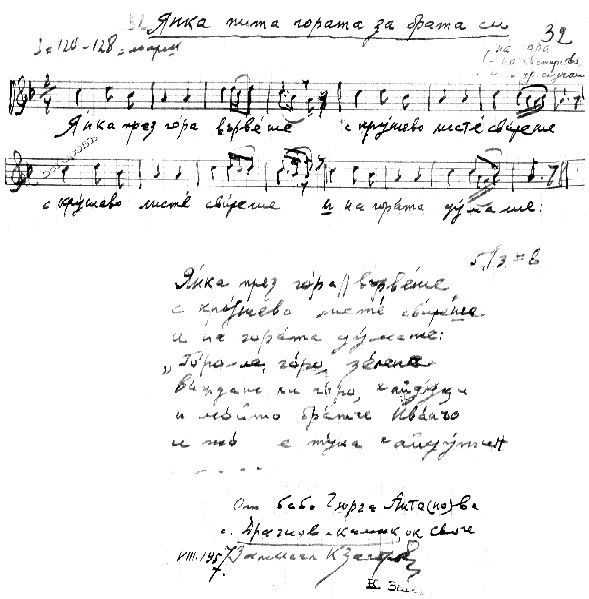 Янка пита гората за брата си
32
Янка през гора вървеше с крушево листе свиреше
с крушево листе свиреше и на гората думаше:
Янка през гора вървеше
с крушево листе свиреше
и на гората думаше:
„Горо ле, горо, зелена
виждаш ли горо, хайдуци
и мойто братче Иванчо
и то е тука хайдутин
От баба Гюрга Анта(но)ва
с. Драгнов
VIII.1957